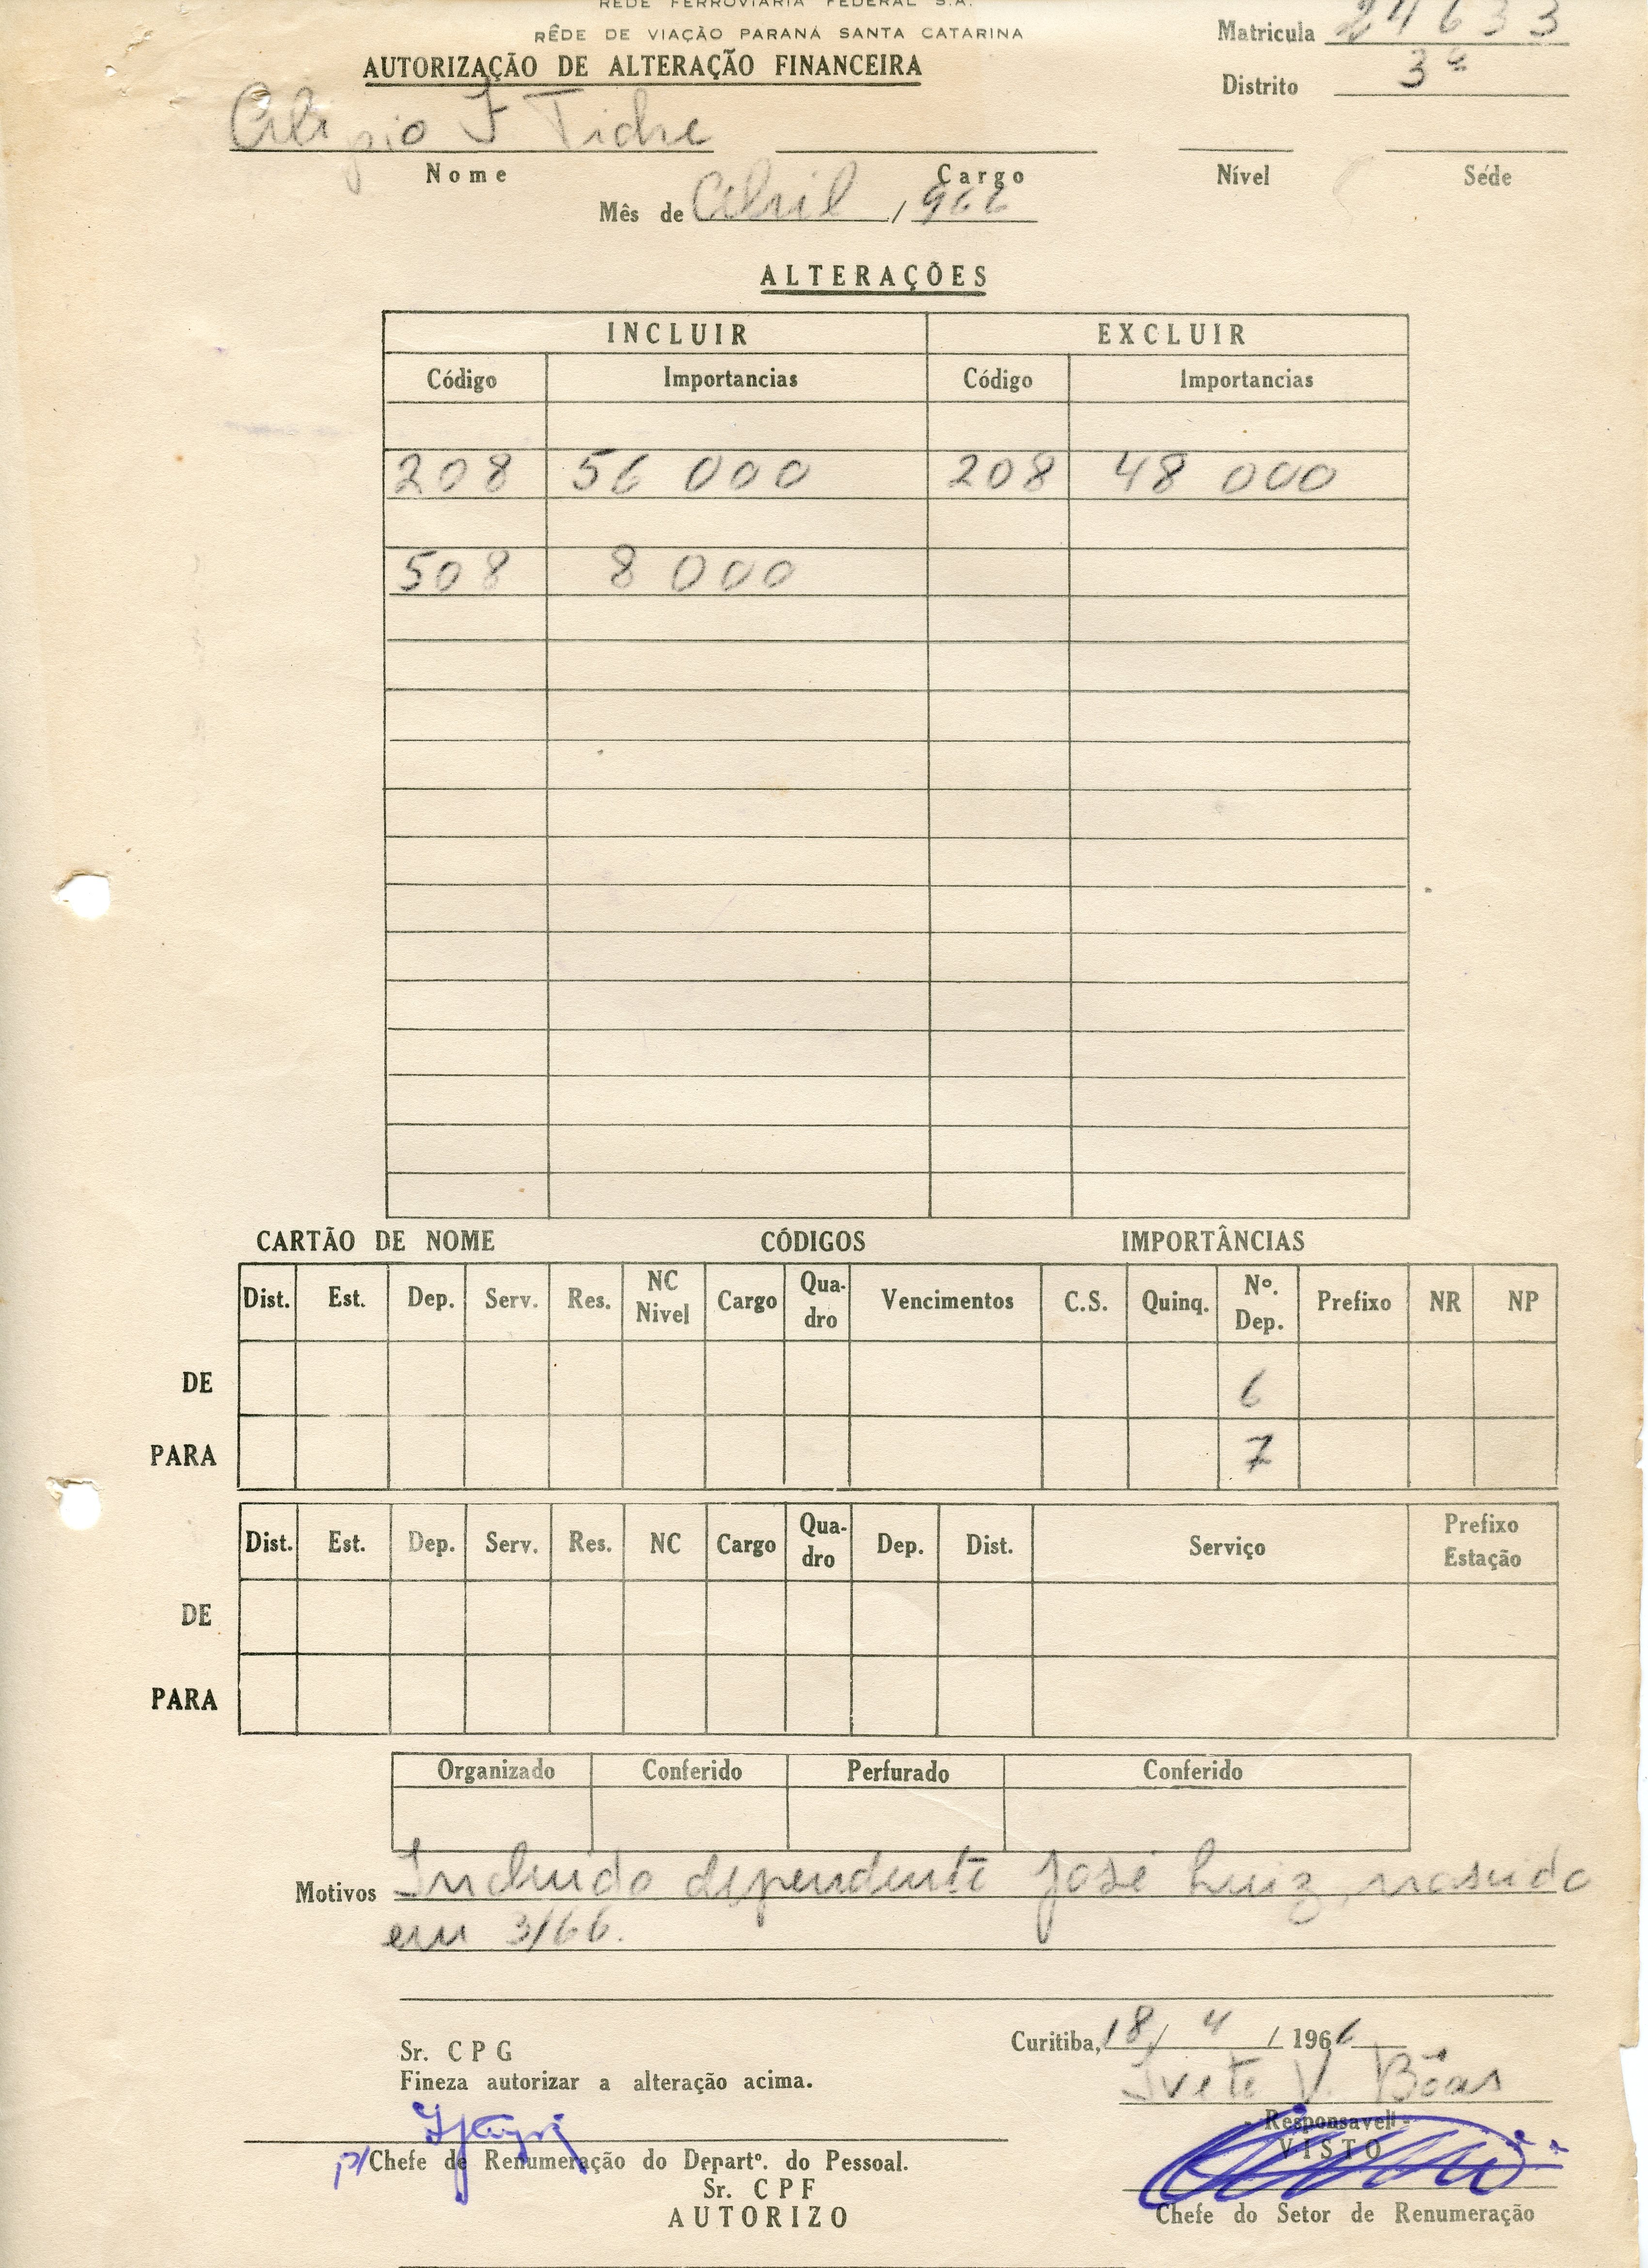 REDE FERROVIARIA FEDERAL S.A.
RÊDE DE VIAÇÃO PARANÁ SANTA CATARINA
AUTORIZAÇÃO DE ALTERAÇÃO FINANCEIRA
Matricula 24633
Distrito 3ª
Nome Cargo Nível Séde
Mês de Abril / 966
ALTERAÇÕES
INCLUIR EXCLUIR
Código Importancias Código Importancias
208 56 000 208 48 000
508 8 000
CARTÃO DE NOME CÓDIGOS IMPORTÂNCIAS
Dist. Est. Dep. Serv. Res. NC Nivel Cargo Qua-dro Vencimentos C.S. Quinq. Nº. Dep. Prefixo NR NP
DE 6
PARA 7
Dist. Est. Dep. Serv. Res. NC Cargo Qua-dro Dep. Dist. Serviço Prefixo Estação
DE
PARA
Organizado Conferido Perfurado Conferido
Motivos Incluido dependente José Luiz, nascido
em 3/66.
Curitiba, 18 / 4 / 1966
Sr. CPG
Fineza autorizar a alteração acima.
Ivete V. Bôas
- Responsavel -
VISTO
p/ Chefe de Renumeração do Departº. do Pessoal.
Sr. CPF
AUTORIZO
Chefe do Setor de Renumeração